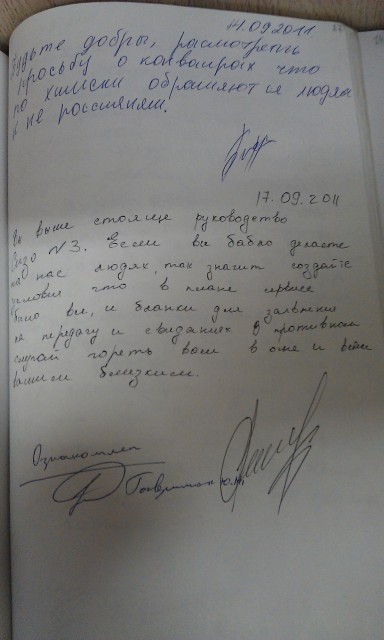 14.09.2011.
Будьте добры, расмотреть
просьбу о конвоирах что
по хамски обращяются людям
к не россияням.
17.09.2011
Вы выше стояще руководство
Сизо №3. Если вы бабло делаете
на нас людях, так значит создайте
условия что в плане сервиса
было все, и бланки для заявления
на передачу и свиданиях в противном
случай гореть вам в огне и всем
вашим близким.
Ознакомлен